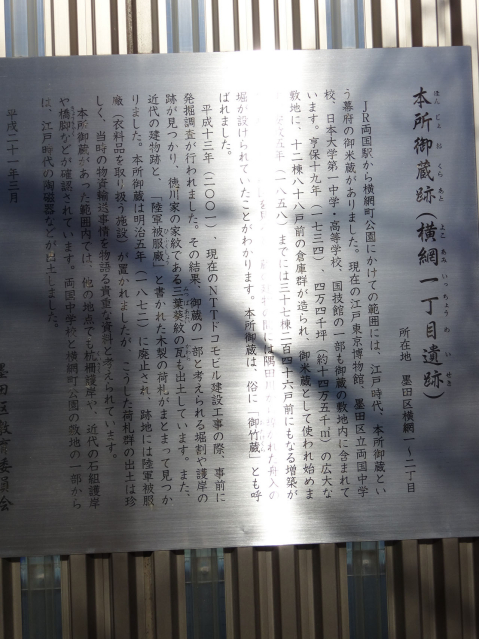 本所御蔵跡(横網一丁目遺跡)
ほん じょ お くら あと よこ あみ いっ ちょう め い せき
所在地 墨田区横網一~二丁目
JR両国駅から横網町公園にかけての範囲には、江戸時代、本所御蔵とい
う幕府の御米蔵がありました。現在の江戸東京博物館、墨田区立両国中学
校、日本大学第一中学・高等学校、国技館の一部も御蔵の敷地内に含まれて
います。享保十九年(一七三四)、四万四千坪(約十四万五千㎡)の広大な
敷地に、十二棟八十八戸前の倉庫群が造られ、御米蔵として使われ始めま
(一八五八)までには三十七棟二百四十六戸前にもなる増築が
舟入の
堀が設けられていたことがわかります。本所御蔵は、俗に「御竹蔵」とも呼
ばれました。
平成十三年(二〇〇一)、現在のNTTドコモビル建設工事の際、事前に
発掘調査が行われました。その結果、御蔵の一部と考えられる堀割や護岸の
跡が見つかり、徳川家の家紋である三葉葵紋の瓦も出土しています。また、
近代の建物跡と、「陸軍被服廠」と書かれた木製の荷札がまとまって見つか
りました。本所御蔵は明治五年(一八七二)に廃止され、跡地には陸軍被服
廠(衣料品を取り扱う施設)が置かれましたが、こうした荷札群の出土は珍
しく、当時の物資輸送事情を物語る貴重な資料と考えられています。
本所御蔵があった範囲内では、他の地点でも杭柵護岸や、近代の石組護岸
や橋脚などが確認されています。両国中学校と横網町公園の敷地の一部から
は、江戸時代の陶磁器などが出土しました。
平成二十一年三月
墨田区教育委員会